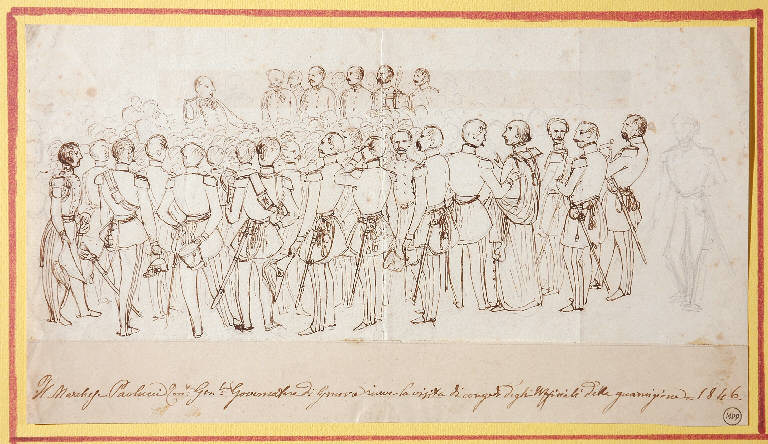 Il Marchese Paolucci Com.te Gen.le Governatore di Genova riceve la visita di congedo degli Uffiziali della guarnigione = 1846.
MDP